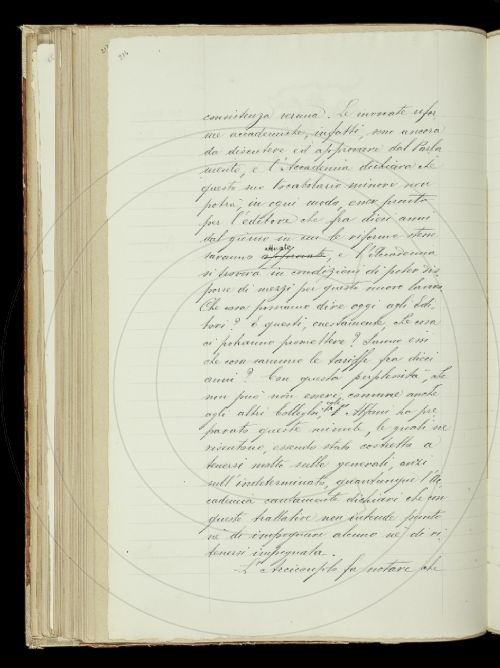 217
216
consistenza veruna. Le invocate rifor
me accademiche, infatti, sono ancora
da discutere ed approvare dal Parla
mento, e l'Accademia dichiara che
questo suo Vocabolario minore non
potrà, in ogni modo, esser pronto
per l'editore che fra dieci anni
dal giorno in cui le riforme stesse
saranno attuate, e l'Accademia
si troverà in condizioni di poter dis
porre di mezzi per questo nuovo lavoro.
Che cosa possiamo dire oggi agli Edi
tori? E questi, onestamente, che cosa
ci potranno promettere? Sanno essi
che cosa saranno le tariffe fra dieci
anni? Con questa perplessità, che
non può non essere comune anche
agli altri Colleghi, il Alfani ha pre
parato queste minute, le quali ne
risentono, essendo stato costretto a
tenersi molto sulle generali, anzi
sull'indeterminato, quantunque l'Ac
cademia cautamente dichiari che con
queste trattative non intende punto
nè di impegnare alcuno nè di ri
tenersi impegnata.
L'Arciconsolo fa notare che